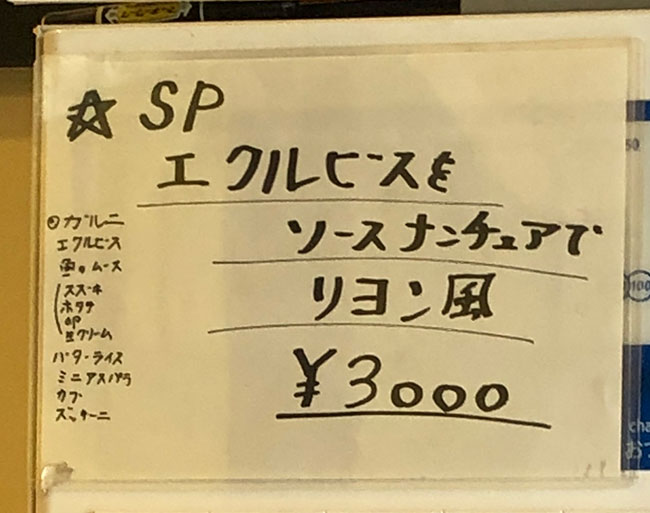 ☆SP
エクルビスを
ソースナンチュアで
リヨン風
¥3000
⊙ガルニ
エクルビス
魚のムース
スズキ
ホタテ
卵
生クリーム
バターライス
ミニアスパラ
カブ
ズッキーニ
50
100
cha
おつ